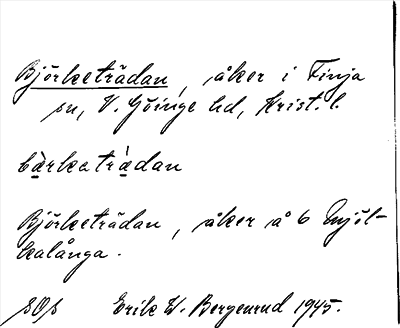 Björketrädan, åker i Finja
sn, V. Göinge hd, Krist. l.
bàrkatràdan
Björketrädan, åker å 6 Mjöl-
kalånga.
Erik W. Bergenrud 1945.